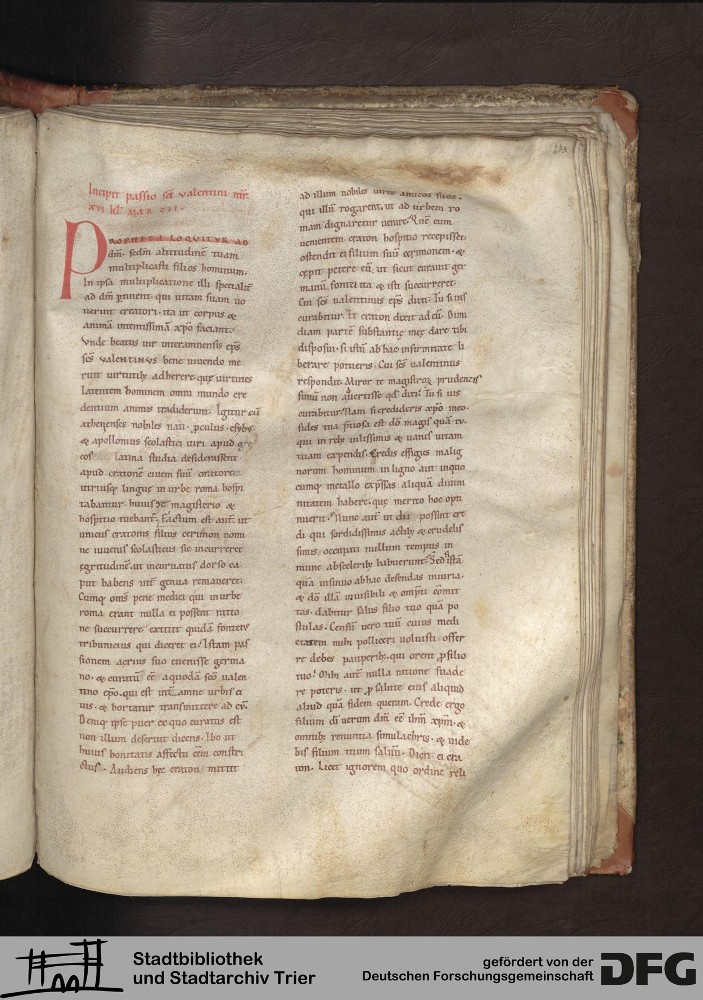 233
Incipit passio scī valentini mr̄.
XVI kl̄ MARCII.
PROPHETA LOQVITVR AD
dm̄. scdm̄ altitudinē tuam
multiplicasti filios hominum.
In ipsa multiplicatione illi specialit̄
ad dm̄ ꝑtinent. qui uitam suam uo
uerint creatori. ita ut corpus &
animā intentissimā xp̄o faciant.
Vnde beatus uir interamnensis ep̄s
scs̄ VALENTINVS bene uiuendo me
ruit uirtutib; adherere. quę uirtutes
latentem hominem omni mundo cre
dentium animis tradiderunt. Igitur cū
athenenses nobiles uiri. proculus. ephyb;
& apollonius scolastici uiri apud gre
cos latina studia desiderassent
apud cratonē ciuem suū oratorem
utriusq; linguę in urbe roma hospi
tabantur huius magisterio &
hospitio utebant̄. Factum est autē. ut
unicus cratonis filius cerimon nomi
ne iuuenis scolasticus sic incurreret
egritudinē. ut incuruatus dorso ca
put habens int̄ genua remaneret.
Cumq; oms̄ pene medici qui in urbe
roma erant nulla ei possent ratio
ne succurrere. extitit quidā fonteiꝰ
tribunicius qui diceret ei. Istam pas
sionem acrius suo euenisse germa
no. & curatū eē aquodā scō valen
tino ep̄o. qui est int̄amne urbis ci
uis. & hortatur transmittere ad eū.
Deniq; ipse puer ex quo curatus est
non illum deseruit dicens. Ibo ut
huius bonitatis affectu eēm constri
ctus. Audiens hęc craton mittit
ad illum nobiles uiros amicos suos.
qui illū rogarent. ut ad urbem ro
mam dignaretur uenire. Quē cum
uenientem craton hospitio recepisset.
ostendit ei filium suū cerimonem. &
cępit petere eū. ut sicut curauit ger
manū fontei ita & isti succurreret.
Cui scs̄ valentinus ep̄s dixit. Tu si uis
curabitur. Et craton dixit ad eū. Dimi
diam partē substantię meę dare tibi
disposui. si istū ab hac infirmitate li
berare potueris. Cui scs̄ valentinus
respondit. Miror te magistroꝝ prudentis
simū non aduertisse qd̄ dixi. Tu si uis
curabitur. Nam si credideris xp̄o meo.
fides tua p̄tiosa est dō. magis quā tu.
qui in reb; uilissimis & uanis uitam
tuam expendis. Credis effigies malig
norum hominum in ligno aut in quo
cumq; metallo exp̄ssas aliquā diuini
nitatem habere. quę merito hoc opti
nuerit. Nunc autē ut dii possint cre
di qui sordidissimis actib; & crudelis
simis occupati nullum tempus in
mune ab scelerib; habuerunt. Sed istā
quā in sinuo ab hac defendas iniuria.
& dō illā inuisibili & omp̄ti cōmit
tas. dabitur salus filio tuo quā po
stulas. Censū uero tuū cuius medi
etatem mihi polliceri uoluisti. offer
re debes pauperib; qui orent ꝑ filio
tuo. Mihi autē nulla ratione suade
re poteris. ut ꝑ salute eius aliquid
aliud quā fidem queram. Crede ergo
filium dī uerum dm̄ eē ihm̄ xpm̄. &
omnib; renuntia simulachris. & uide
bis filium tuum saluū. Dicit ei cra
ton. Licet ignorem quo ordine reli
Stadtbibliothek
und Stadtarchiv Trier
gefördert von der
Deutschen Forschungsgemeinschaft
DFG